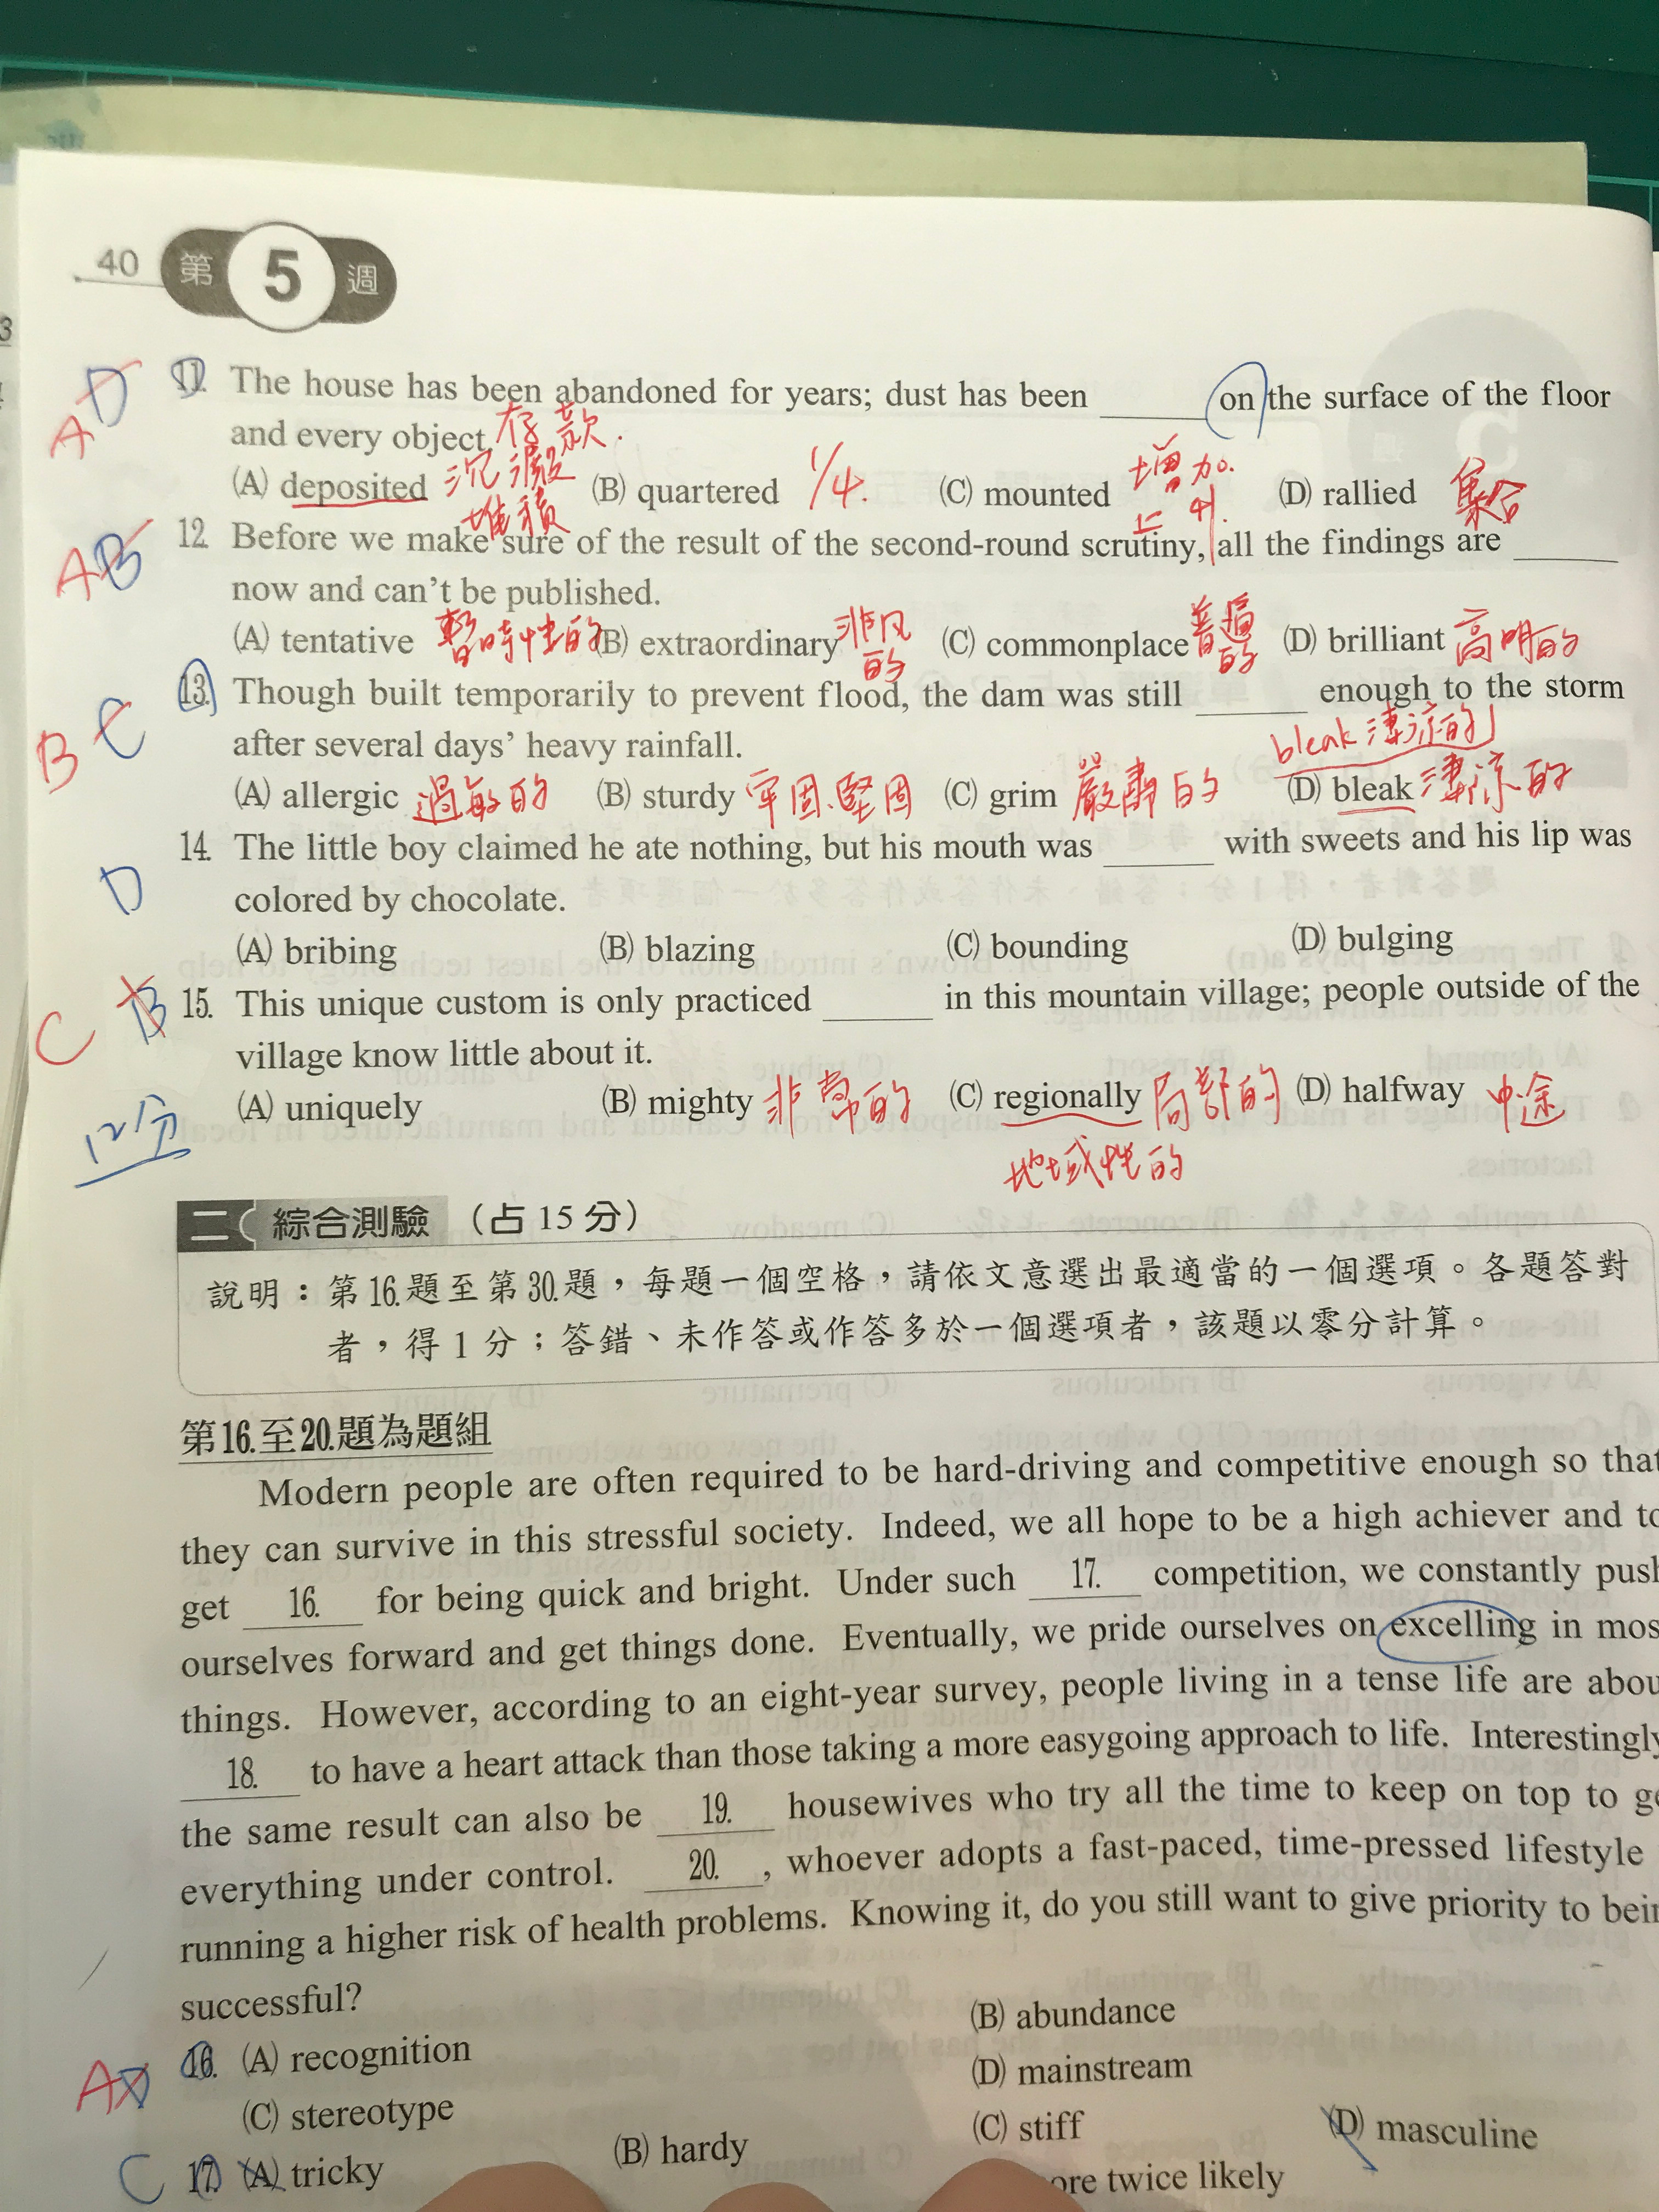 40 第 5 週
A D 11. The house has been abandoned for years; dust has been ______ on the surface of the floor
and every object. 存款.
(A) deposited 沉澱 堆積 (B) quartered 1/4. (C) mounted 增加. 上升. (D) rallied 集合
A B 12. Before we make sure of the result of the second-round scrutiny, all the findings are ______
now and can't be published.
(A) tentative 暫時性的 (B) extraordinary 非凡的 (C) commonplace 普遍的 (D) brilliant 高明的
B C 13. Though built temporarily to prevent flood, the dam was still ______ enough to the storm
after several days' heavy rainfall. bleak 淒涼的
(A) allergic 過敏的 (B) sturdy 牢固、堅固 (C) grim 嚴肅的 (D) bleak 淒涼的
D 14. The little boy claimed he ate nothing, but his mouth was ______ with sweets and his lip was
colored by chocolate.
(A) bribing (B) blazing (C) bounding (D) bulging
C B 15. This unique custom is only practiced ______ in this mountain village; people outside of the
village know little about it.
(A) uniquely (B) mighty 非常的 (C) regionally 局部的 (D) halfway 中途
12分 地域性的
二 綜合測驗 (占 15 分)
說明：第16.題至第30.題，每題一個空格，請依文意選出最適當的一個選項。各題答對
者，得 1 分；答錯、未作答或作答多於一個選項者，該題以零分計算。
第16.至20.題為題組
Modern people are often required to be hard-driving and competitive enough so that
they can survive in this stressful society. Indeed, we all hope to be a high achiever and to
get 16. for being quick and bright. Under such 17. competition, we constantly push
ourselves forward and get things done. Eventually, we pride ourselves on excelling in mos
things. However, according to an eight-year survey, people living in a tense life are abou
18. to have a heart attack than those taking a more easygoing approach to life. Interestingly
the same result can also be 19. housewives who try all the time to keep on top to ge
everything under control. 20. , whoever adopts a fast-paced, time-pressed lifestyle
running a higher risk of health problems. Knowing it, do you still want to give priority to bein
successful?
A D 16. (A) recognition (B) abundance
(C) stereotype (D) mainstream
C 17. (A) tricky (B) hardy (C) stiff (D) masculine
ore twice likely